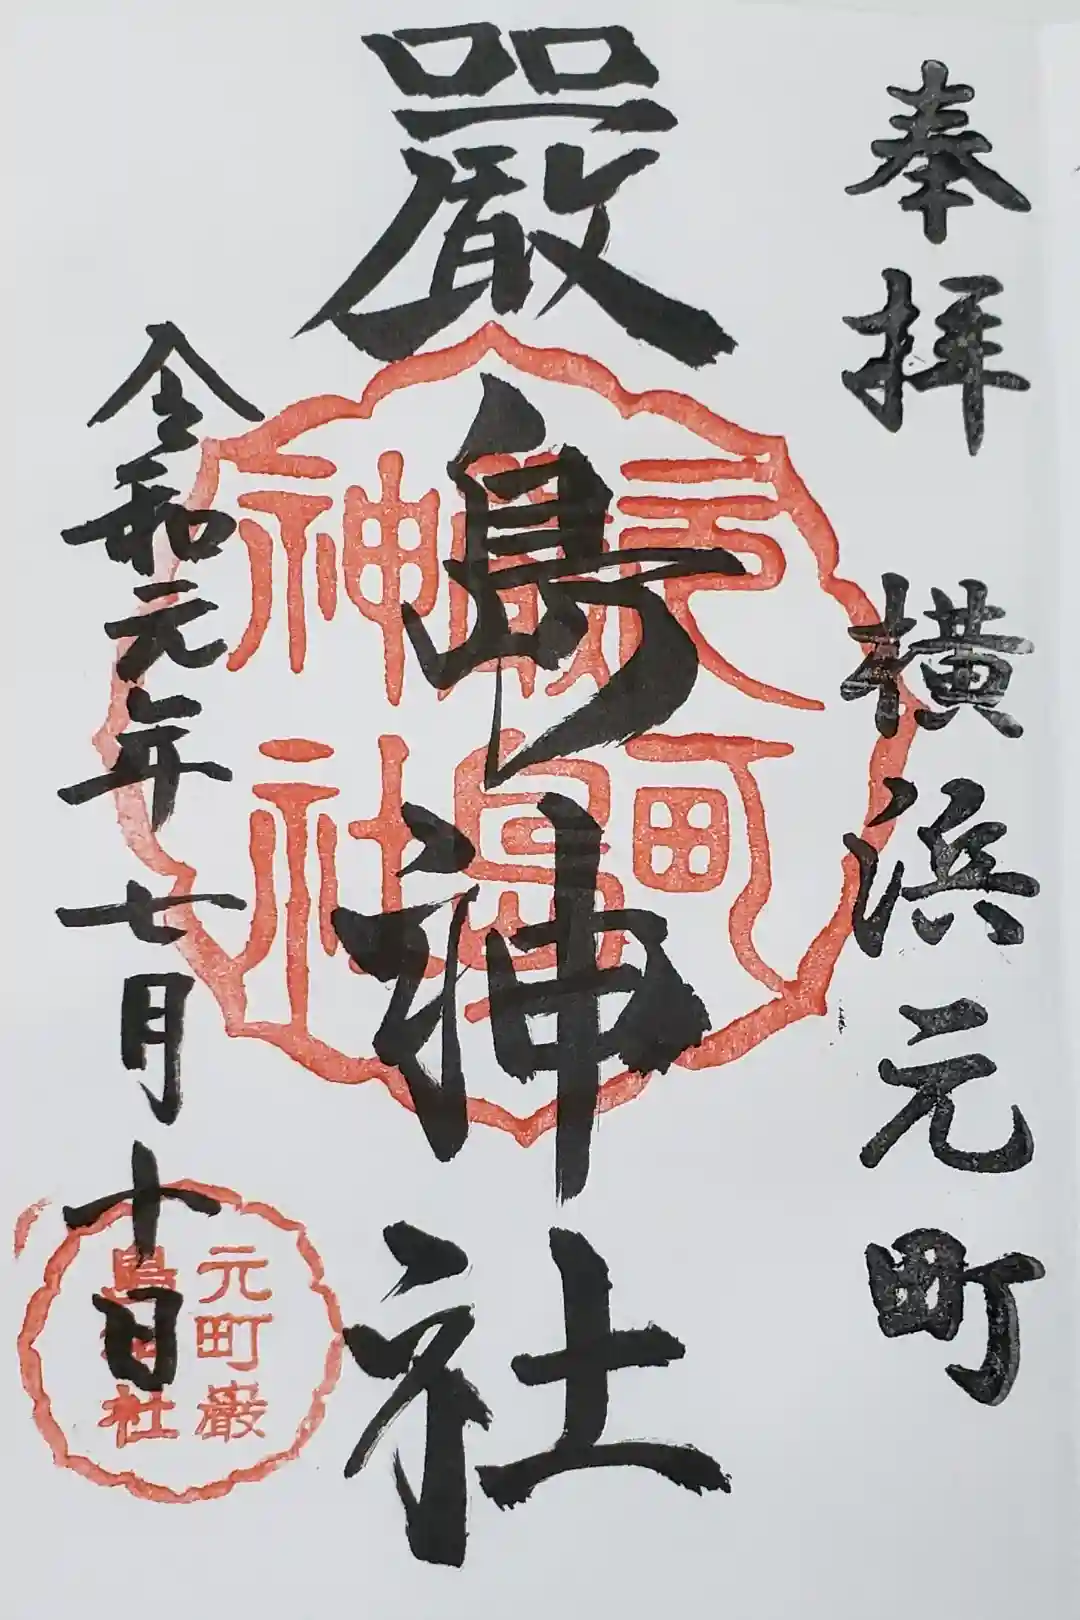 奉拝 横浜元町
嚴島神社
令和元年七月十日
元町
嚴島
神社
元町巌
島神社